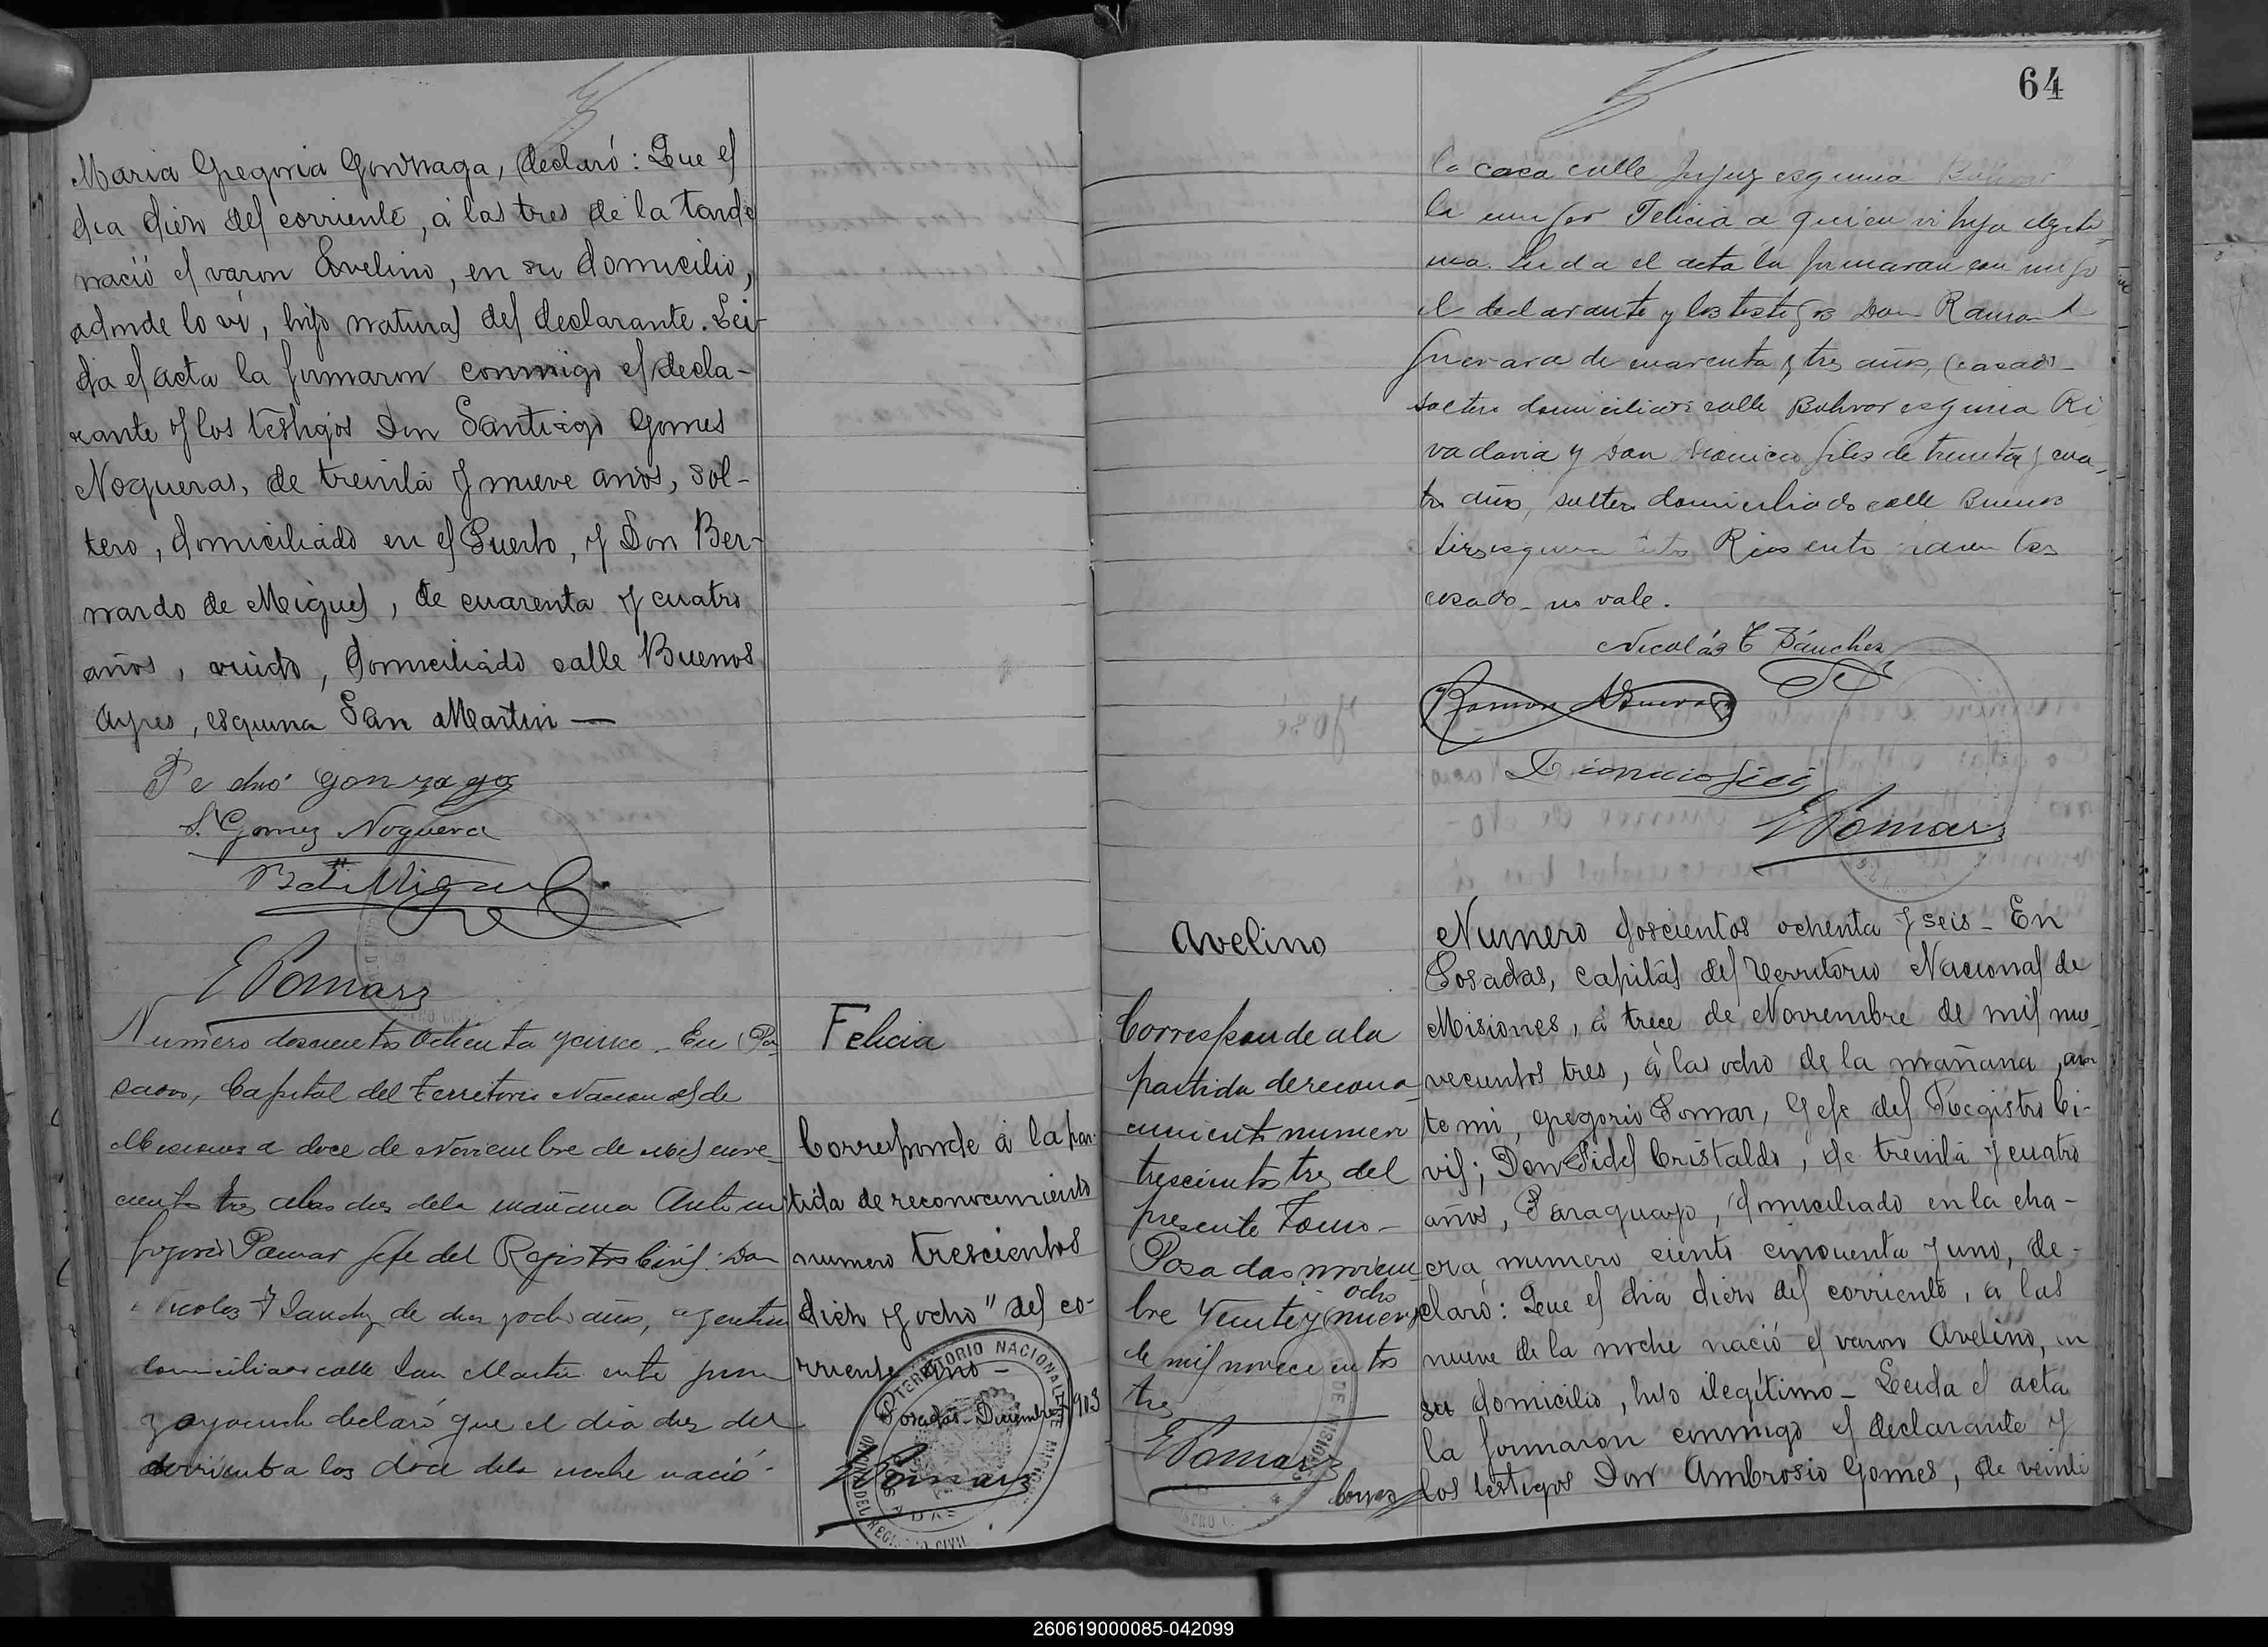 Maria Gregoria Gonzaga, declaró: Que el
dia diez del corriente, á las tres de la tarde
nació el varon Avelino, en su domicilio,
adonde lo ví, hijo natural del declarante. Lei-
da el acta la firmaron conmigo el decla-
rante y los testigos Don Santiago Gomes
Nogueras, de treinta y nueve años, sol-
tero, domiciliado en el Puerto, y Don Ber-
nardo de Miguel, de cuarenta y cuatro
años, viudo, domiciliado calle Buenos
Ayres, esquina San Martin —
Pedro Gonzaga
S. Gomez Noguera
B de Miguel
G Pomar
Numero doscientos ochenta y cinco. En Po
sadas, Capital del Territorio Nacional de
Misiones a doce de Noviembre de mil nove-
cientos tres a las diez de la mañana Ante mi
Gregorio Pomar Gefe del Registro Civil: Don
Nicolas T Sanchez de diez y ocho años, argentino
domiciliado calle San Martin entre
y ayacucho declaró que el dia diez del
corriente a las doce de la noche nació
Felicia
Corresponde á la par-
tida de reconocimiento
numero trescientos
diez y ocho" del co-
rriente Tomo —
Posadas - Diciembre 1903
G Pomar
TERRITORIO NACIONAL DE MISIONES
OFICINA DEL REGISTRO CIVIL
POSADAS
64
la casa calle Jujuy esquina Bolivar
la mujer Felicia a quien vi hija ilegiti-
ma. Leida el acta la firmaron con migo
el declarante y los testigos Don Ramon A
Guevara de cuarenta y tres años, (casado-
soltero domiciliado calle Bolivar esquina Ri
vadavia y Don Dionicio Giles de treinta y cua-
tro años, soltero domiciliado calle Buenos
Aires esquina Entre Rios entre parentes
casado - no vale.
Nicolás T Sánchez
Ramon A Guevara
Dionicio
G Pomar
Avelino
Corresponde a la
partida de recono-
cimiento numero
trescientos tres del
presente Tomo —
Posadas noviem
ocho
bre veinte y (nueve)
de mil novecientos
tres
G Pomar
Numero doscientos ochenta y seis - En
Posadas, capital del Territorio Nacional de
Misiones, á trece de Noviembre de mil no-
vecientos tres, á las ocho de la mañana, an
te mi, Gregorio Pomar, Gefe del Registro Ci-
vil; Don Fidel Cristaldo, de treinta y cuatro
años, Paraguayo, domiciliado en la cha-
cra numero ciento cincuenta y uno, de-
claró: Que el dia diez del corriente, a las
nueve de la noche nació el varon Avelino, en
su domicilio, hijo ilegítimo - Leida el acta
la firmaron conmigo el declarante y
los testigos Don Ambrosio Gomes, de veinti
260619000085-042099